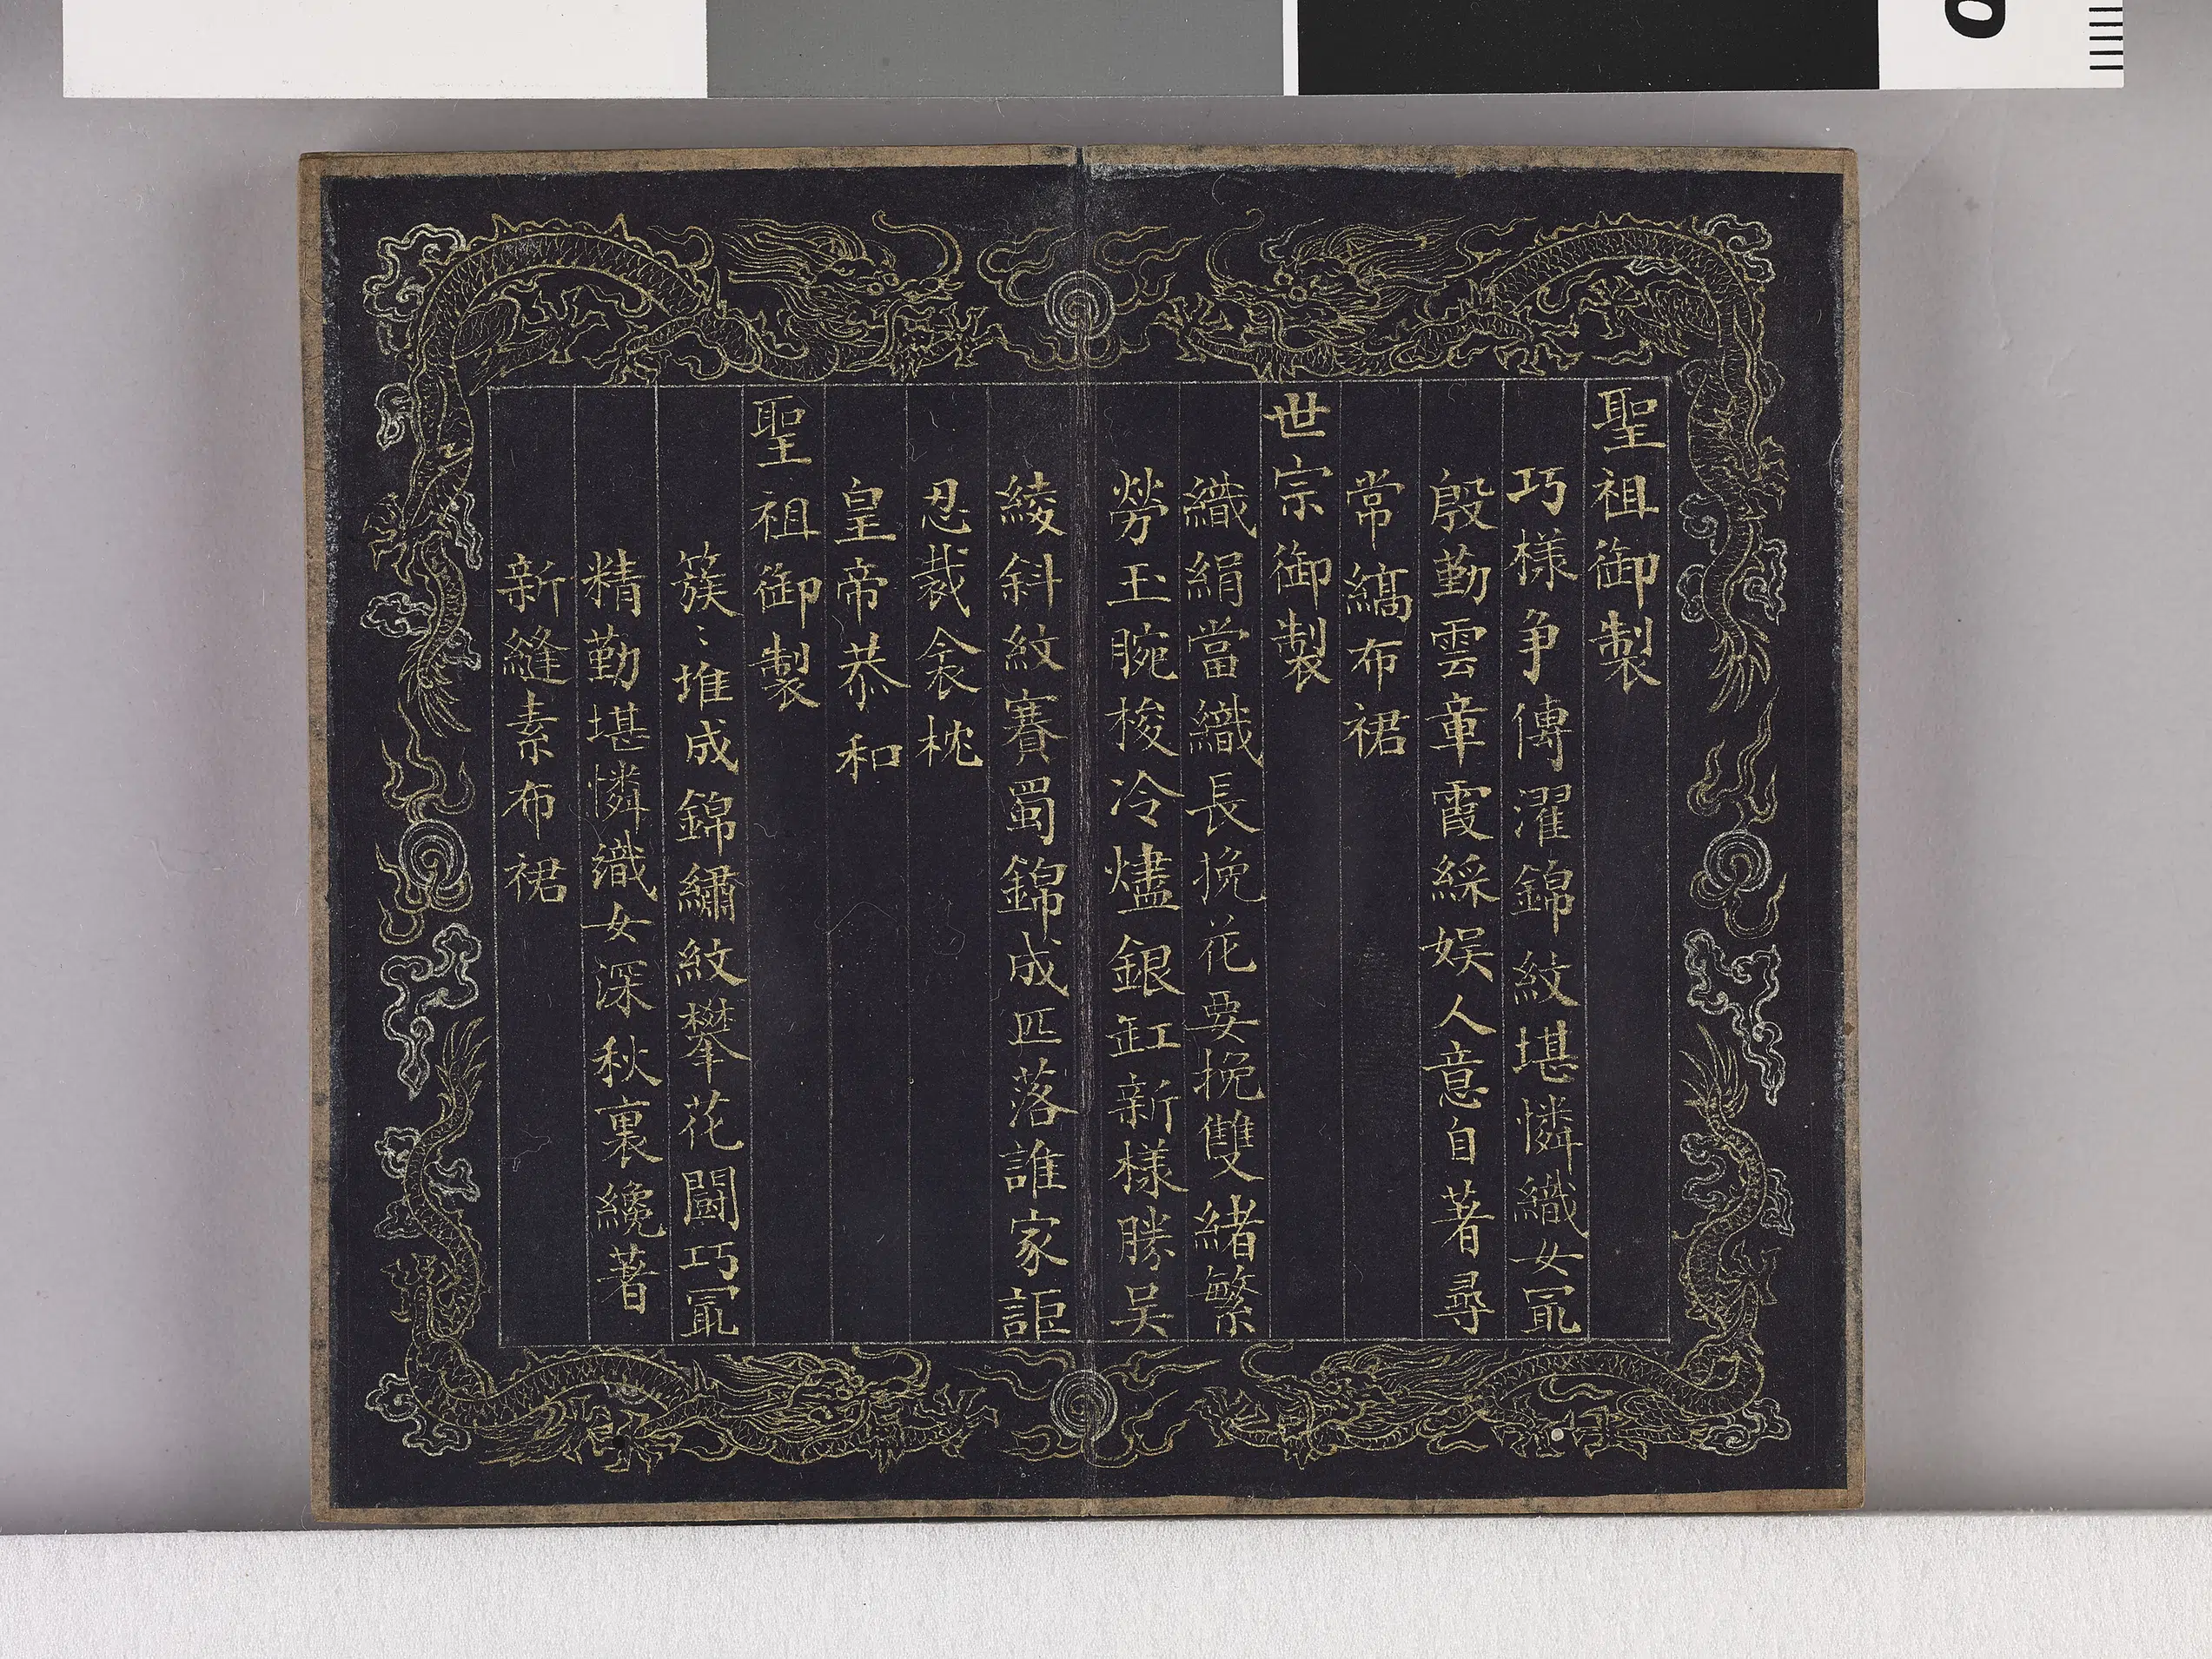 聖祖御製
巧様争傳濯錦紋堪憐織女冣
殷勤雲章霞綵娱人意自著尋
常縞布裙
世宗御製
織絹當織長挽花要挽雙緒繁
勞玉腕梭冷燼銀缸新様勝吴
綾斜紋賽蜀錦成匹落誰家詎
忍裁衾枕
皇帝恭和
聖祖御製
簇〻堆成錦繡紋攀花鬪巧冣
精勤堪憐織女深秋裏纔著
新縫素布裙
0